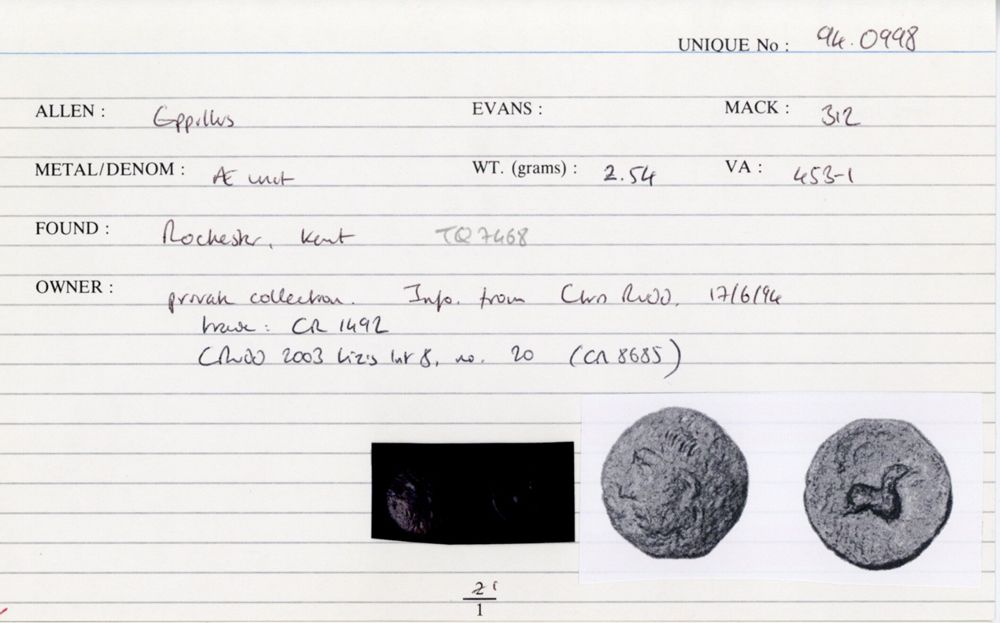 UNIQUE No : 94.0998
ALLEN : Eppillus EVANS : MACK : 312
METAL/DENOM : Æ unit WT. (grams) : 2.54 VA : 453-1
FOUND : Rochester, Kent TQ7468
OWNER : private collection. Info. from Chris Rudd, 17/6/94
trade: CR 1492
CRudd 2003 Liz's list 8, no. 20 (CR 8685)
2
1